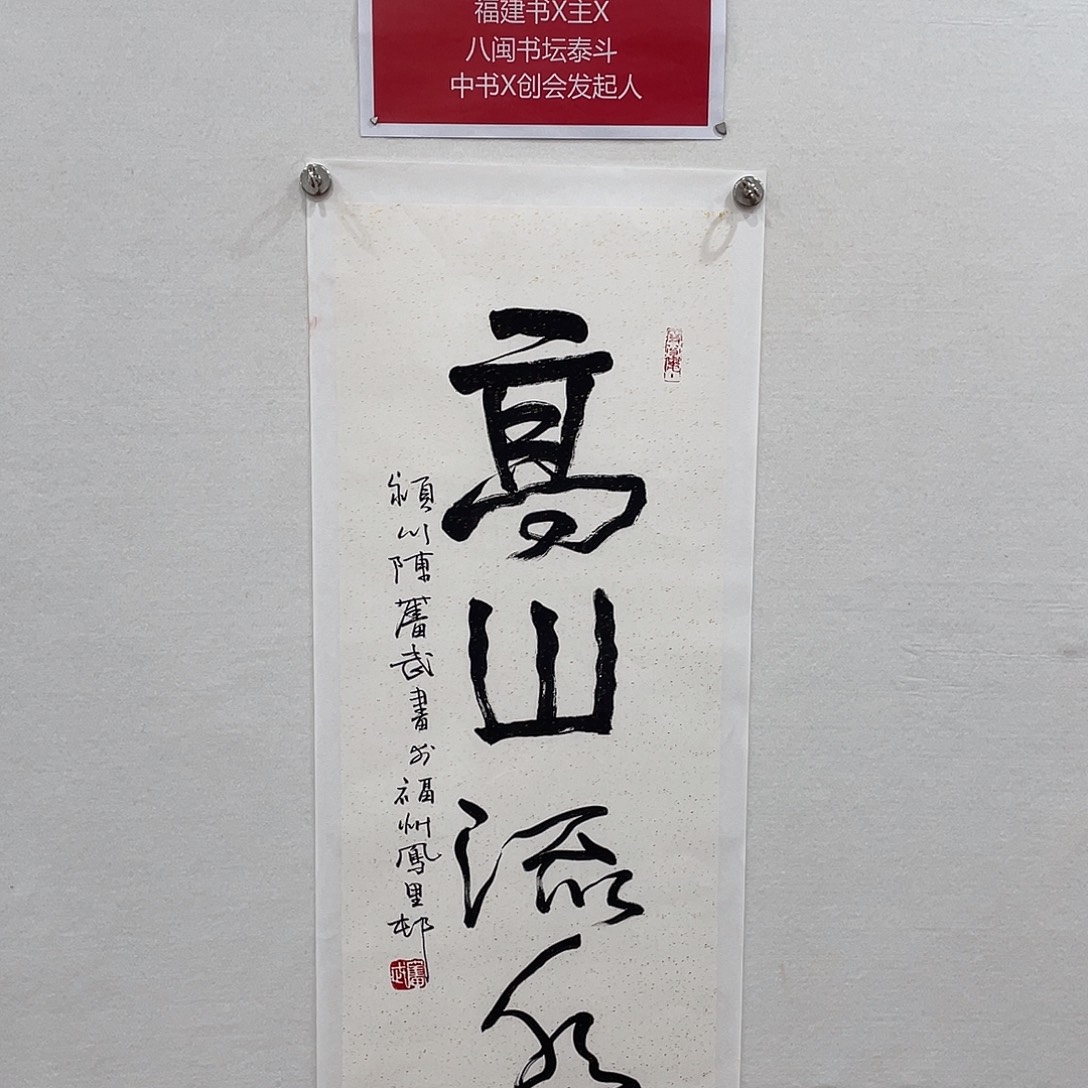 福建书X主X
八闽书坛泰斗
中书X创会发起人
高山流水
颍川陳奮武書於福州鳳里邨
奮武